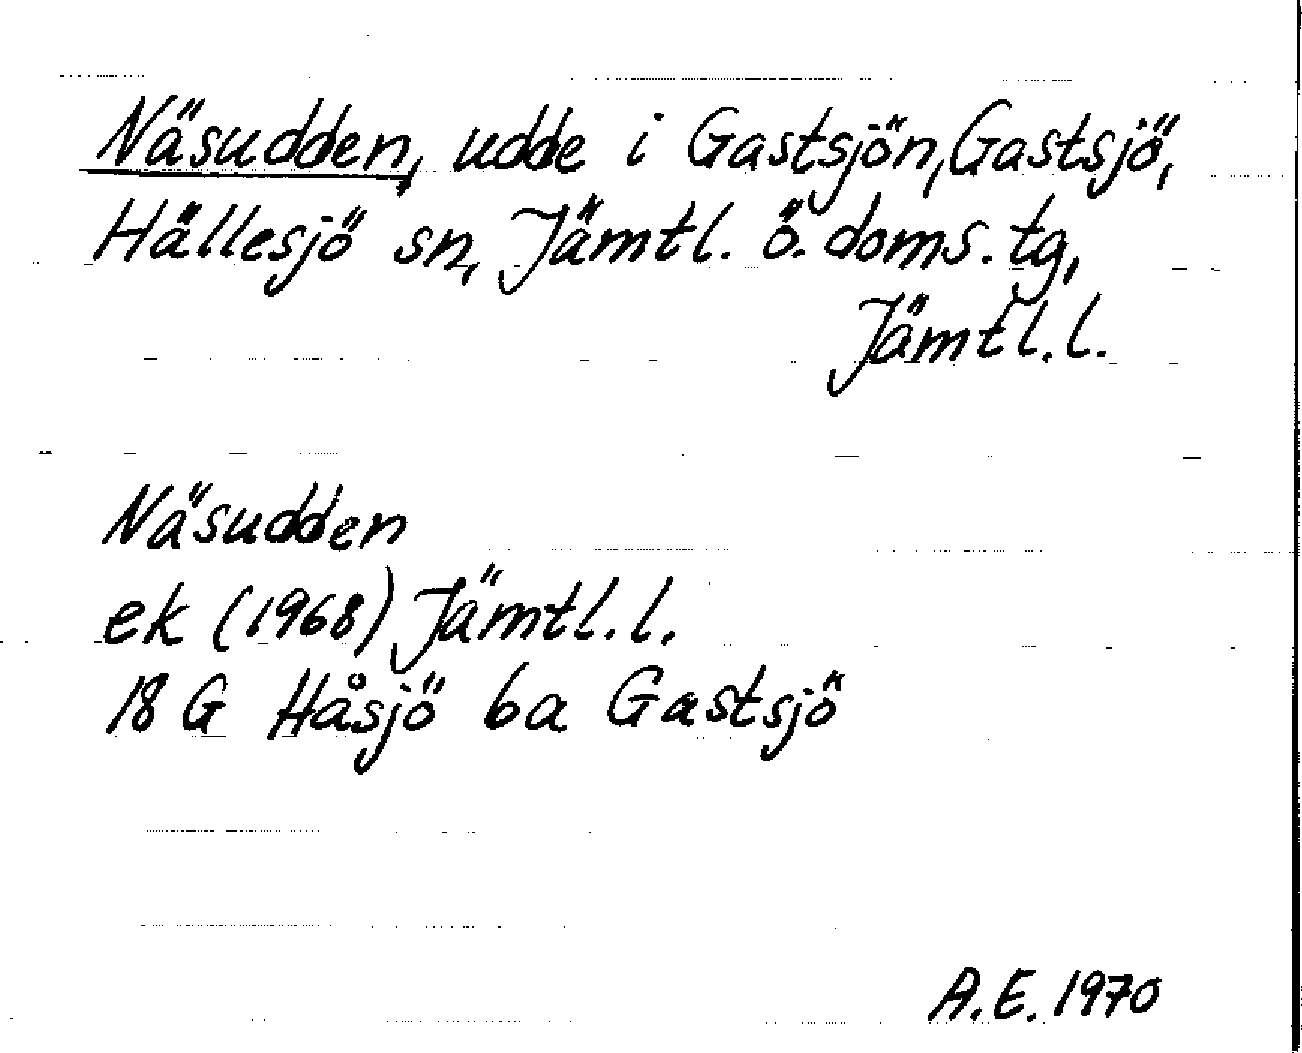 Näsudden, udde i Gastsjön, Gastsjö,
Hällesjö sn, Jämtl. ö. doms. tg,
Jämtl. l.
Näsudden
ek (1968) Jämtl. l.
18 G Håsjö 6a Gastsjö
A.E. 1970